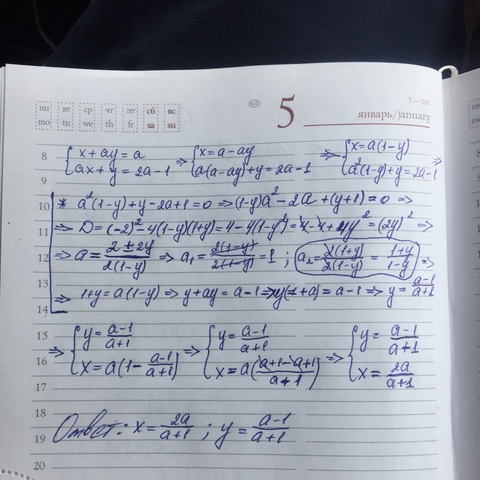 пн вт ср чт пт сб вс
mo tu we th fr sa su
5
5 – 360
январь/january
8 {x + ay = a ⇒ {x = a - ay ⇒ {x = a(1-y) ⇒
9 {ax + y = 2a - 1 {a(a-ay)+y = 2a-1 {a²(1-y)+y = 2a-1
10 * a²(1-y)+y-2a+1=0 ⇒ (1-y)a²-2a+(y+1)=0 ⇒
11 ⇒ D=(-2)²-4(1-y)(1+y)=4-4(1-y²)=4-4+4y²=(2y)² ⇒
12 ⇒ a = (2±2y)/(2(1-y)) ⇒ a₁ = (2(1-y))/(2(1-y)) = 1 ; a₂ = (2(1+y))/(2(1-y)) = (1+y)/(1-y) ⇒
13 ⇒ 1+y = a(1-y) ⇒ y+ay = a-1 ⇒ y(1+a) = a-1 ⇒ y = (a-1)/(a+1)
14
15 ⇒ {y = (a-1)/(a+1) ⇒ {y = (a-1)/(a+1) ⇒ {y = (a-1)/(a+1)
16 {x = a(1-(a-1)/(a+1)) {x = a((a+1-a+1)/(a+1)) {x = 2a/(a+1)
17
18
19 Ответ: x = 2a/(a+1) ; y = (a-1)/(a+1)
20